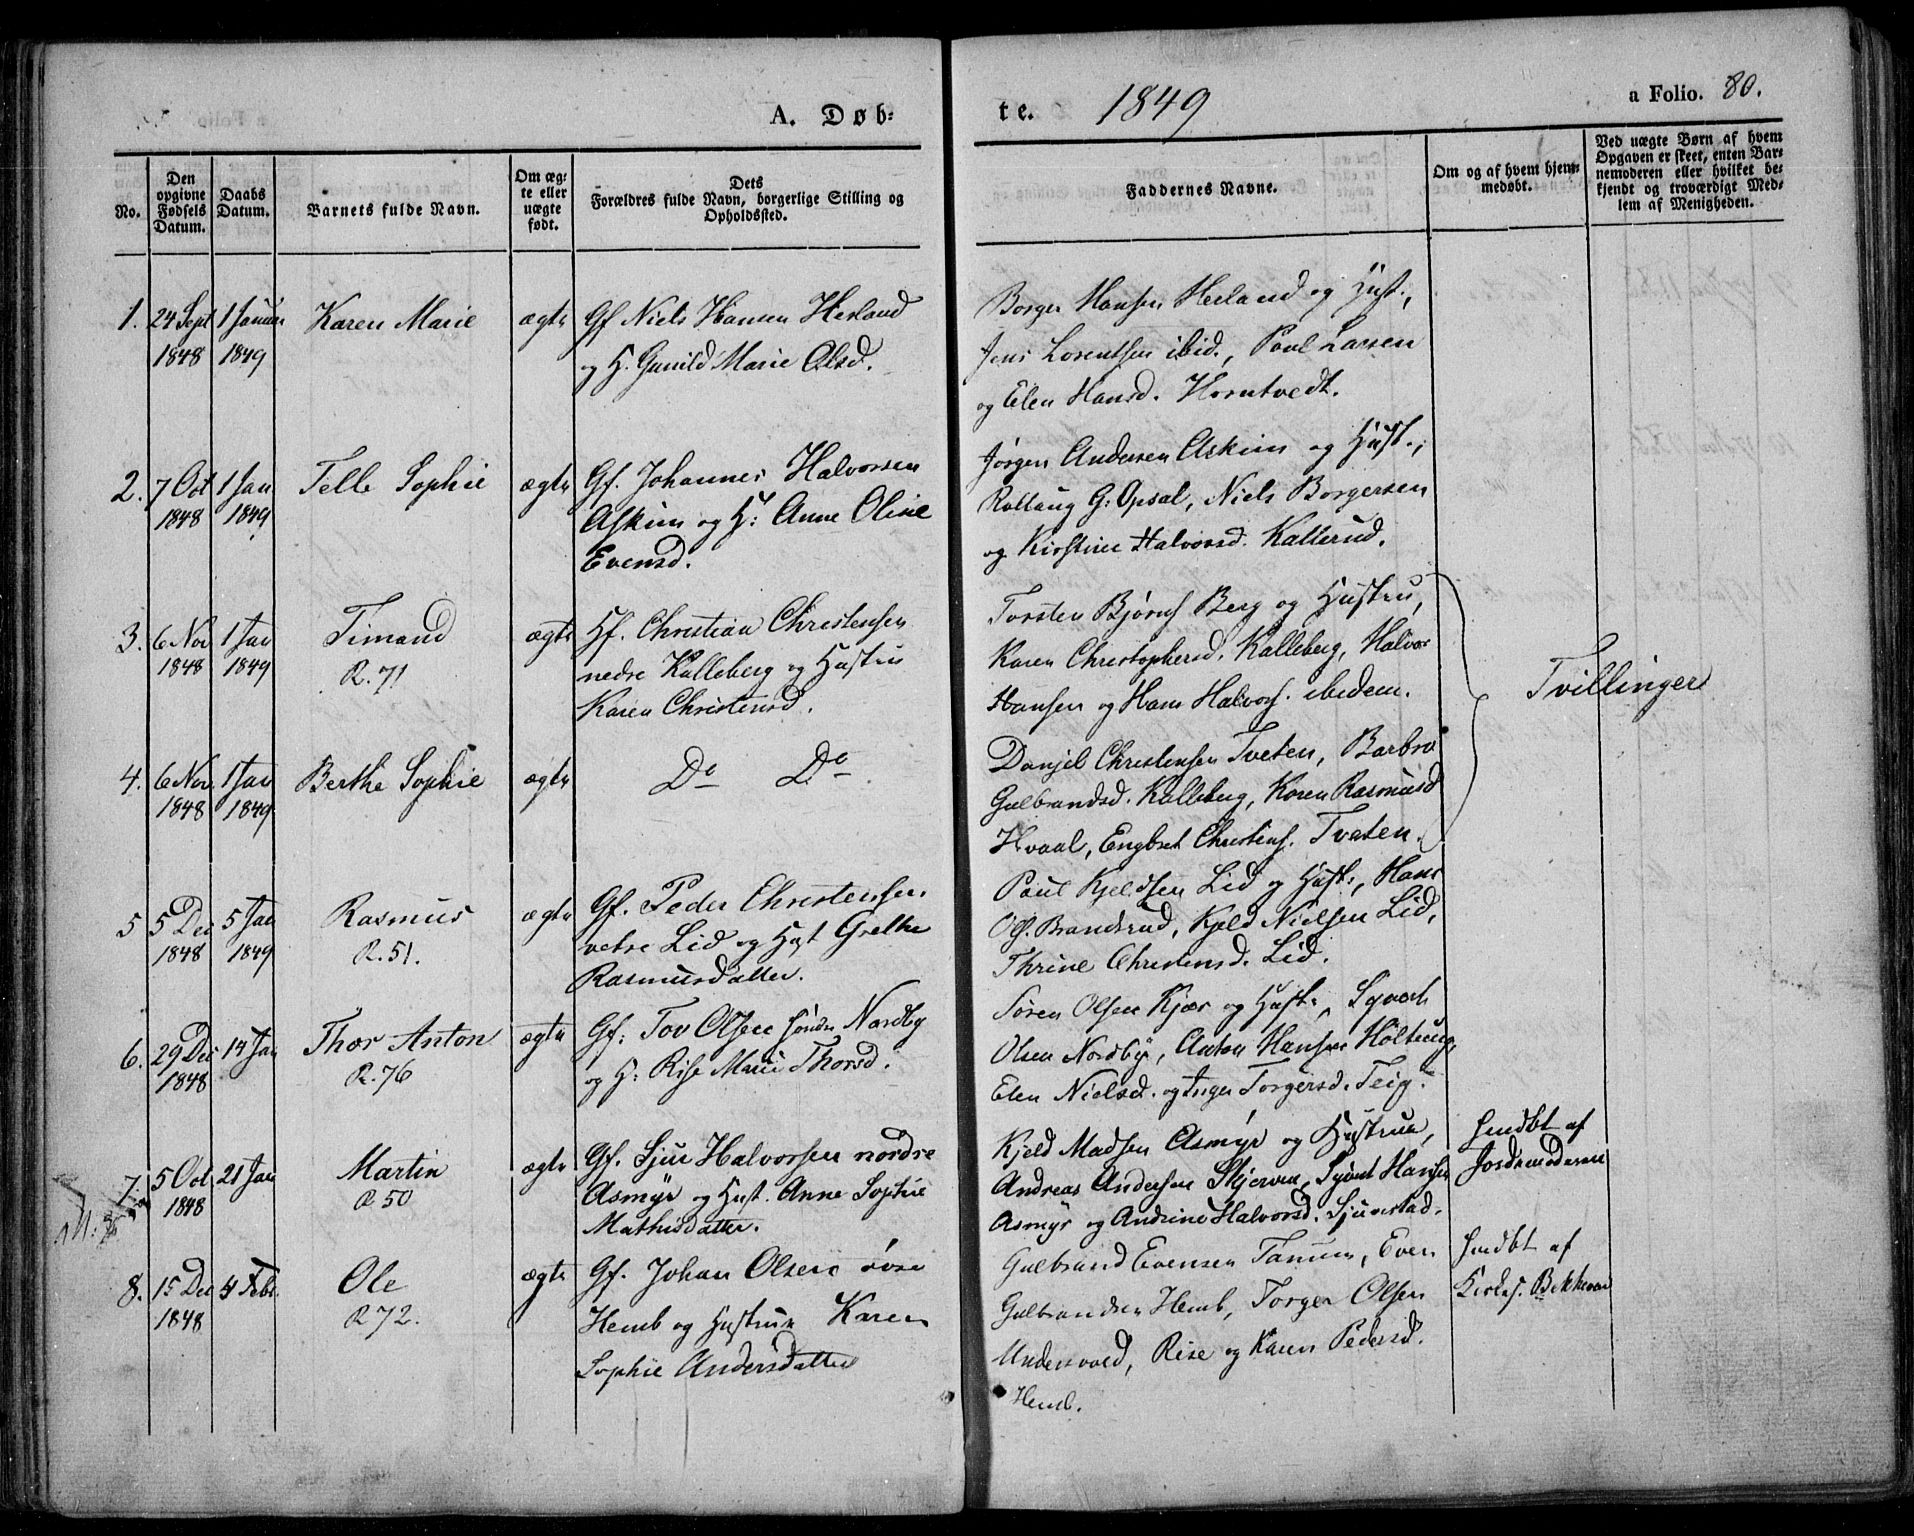 A. Døb-
te. 1849 a Folio. 80.
No.
Den opgivne Fødsels Datum.
Daabs Datum.
Barnets fulde Navn.
Om ægte eller uægte født.
Dets Forældres fulde Navn, borgerlige Stilling og Opholdssted.
Faddernes Navne.
Om og af hvem hjemmedøbt.
Ved uægte Børn af hvem Opgaven er skeet, enten Barnemoderen eller hvilket bekjendt og troværdigt Medlem af Menigheden.
1. 24 Sept 1848 1 Januar 1849 Karen Marie ægte
Gf Niels Hansen Herland
og H. Gunild Marie Olsd.
Borger Hansen Herland og Hust.,
Jens Lorentsen ibid., Paul Larsen
og Elen Hansd. Horntvedt.
2. 7 Oct 1848 1 Jan 1849 Telle Sophie ægte
Gf. Johannes Halvorsen
Askim og H: Anne Oline
Evensd.
Jørgen Andersen Askim og Hust.,
Rollaug G: Opsal, Niels Borgersen
og Kirstine Halvorsd. Kallerud.
3. 6 Nov 1848 1 Jan 1849 Timand R. 71 ægte
Hf. Christian Christensen
nedre Kalleberg og Hustru
Karen Christensd.
Torsten Bjørns Berg og Hustru,
Karen Christophersd. Kalleberg, Halvor
Hansen og Hans Halvors. ibidem.
Tvillinger
4. 6 Nov 1848 1 Jan 1849 Berthe Sophie ægte
Do Do
Danjel Christensen Tveten, Barbro
Gulbrandsd. Kalleberg, Karen Rasmusd
Hvaal, Engbret Christens. Tveten.
5 5 Dec 1848 5 Jan 1849 Rasmus R. 51. ægte
Gf. Peder Christensen
vetre Lid og Hust Grethe
Rasmusdatter.
Paul Kjeldsen Lid og Hust:, Hans
Ols. Brandsrud, Kjeld Nielsen Lid,
Thrine Christensd. Lid.
6. 29 Dec 1848 14 Jan Thor Anton R. 76 ægte
Gf: Tov Olsen søndre Nordby
og H: Rise Marie Thorsd.
Søren Olsen Kjær og Hust:, Syvert
Olsen Nordby, Anton Hansen Holtung,
Elen Nielsd. og Inger Torgersd. Teig.
7. 5 Oct 1848 21 Jan Martin R 50 ægte
Gf. Sjur Halvorsen nordre
Asmyr og Hust. Anne Sophie
Mathisdatter.
Kjeld Madsen Asmyr og Hustrue,
Andreas Andersen Skjerven, Syvert Hansen
Asmyr og Andrine Halvorsd. Sjuestad.
hmdbt af
Jordemoderen
8. 15 Dec 1848 4 Febr. Ole R 72. ægte
Gf. Johan Olsen øvre
Hemb og Hustrue Karen
Sophie Andersdatter
Gulbrand Evensen Tanum, Even
Gulbrandsen Hemb, Torger Olsen
Undersvold, Rise og Karen Pedersd.
Hemb.
hmdbt af
Kirkes. Bekkevar